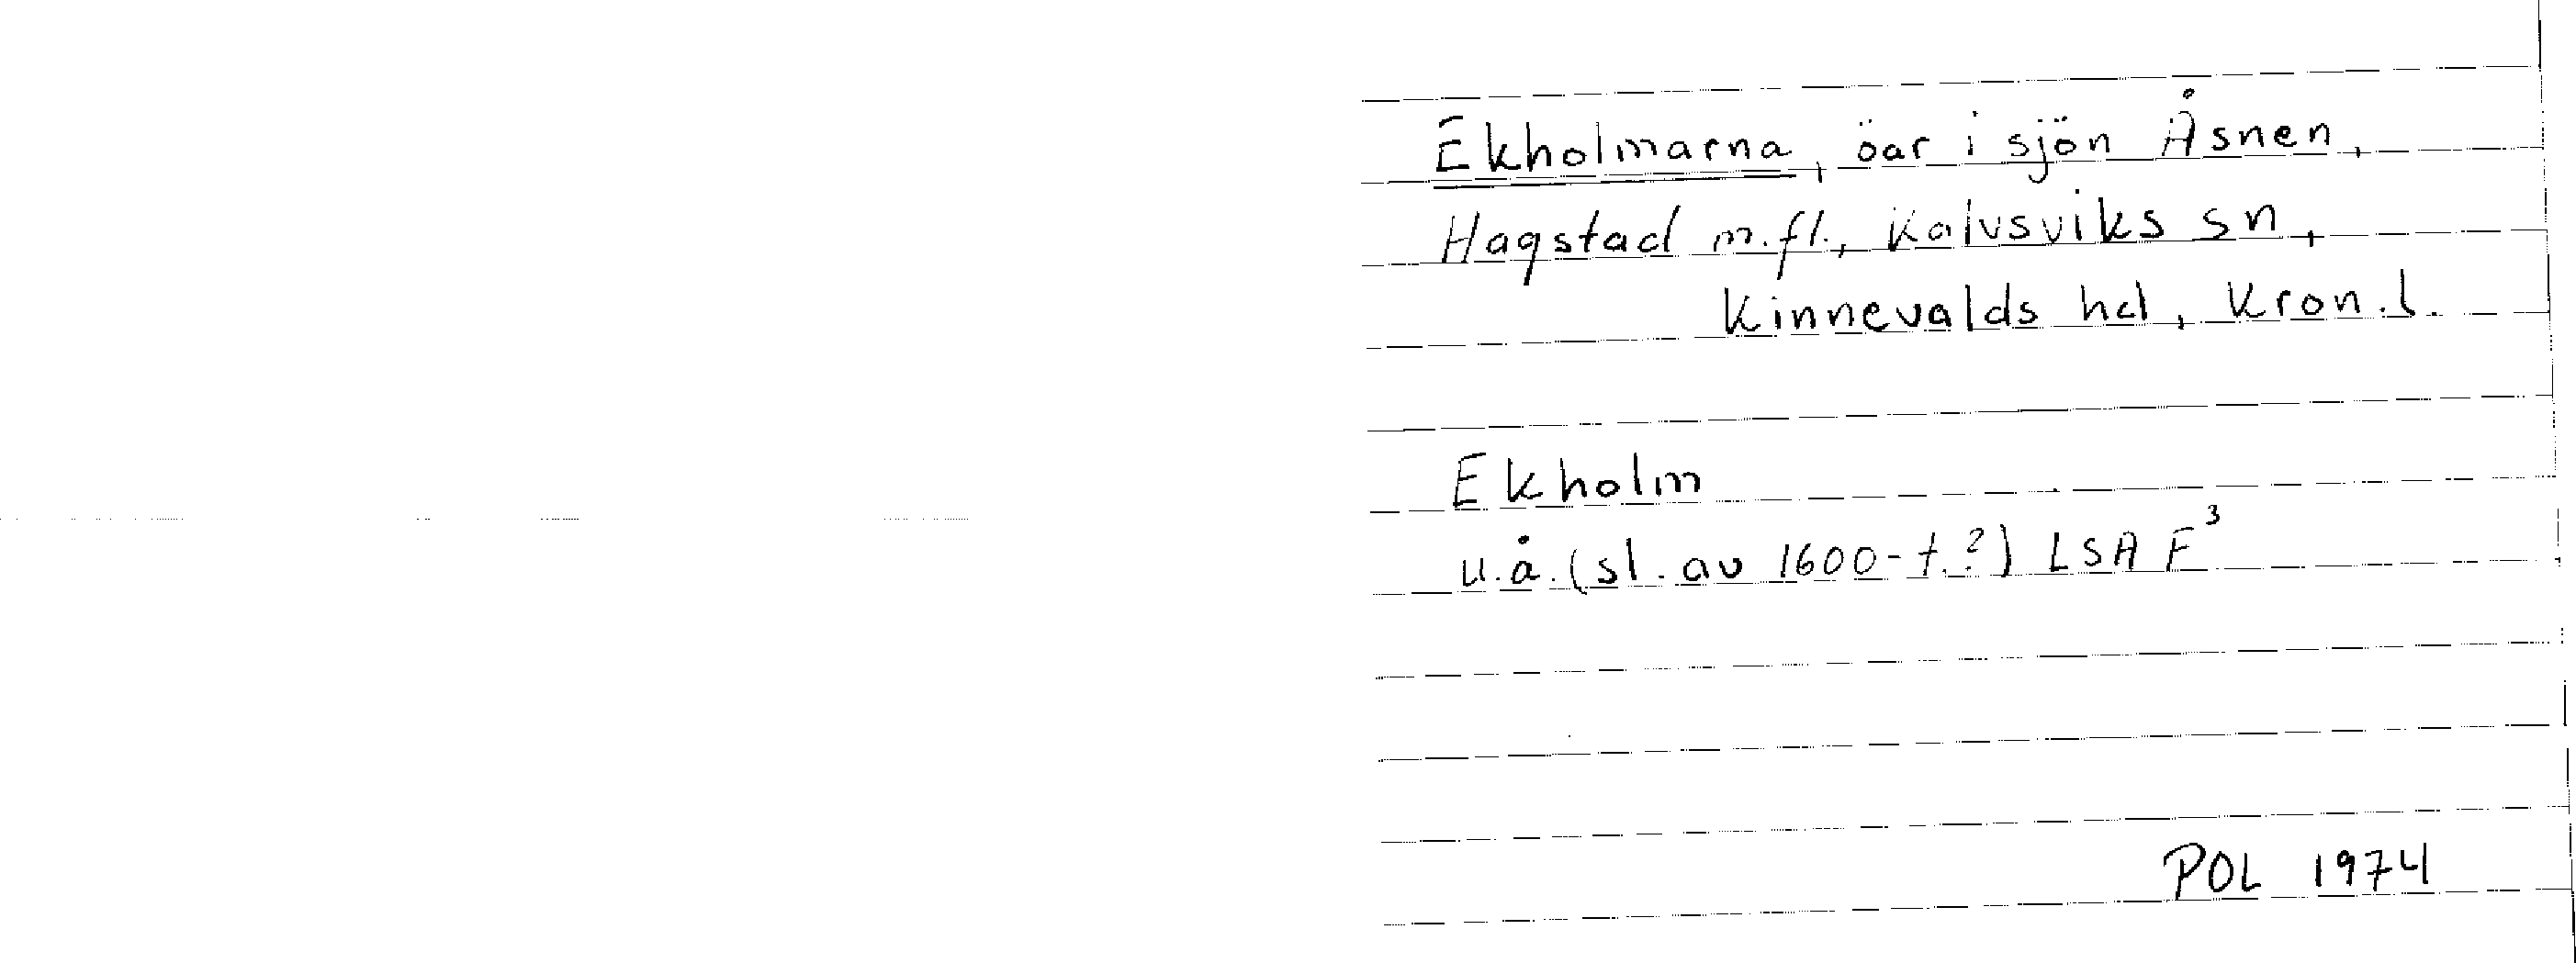 Ekholmarna, öar i sjön Åsnen,
Hagstad m.fl., Kalvsviks sn,
Kinnevalds hd, Kron.l.
Ekholm
u.å. (sl. av 1600-t.?) LSA F³
POL 1974